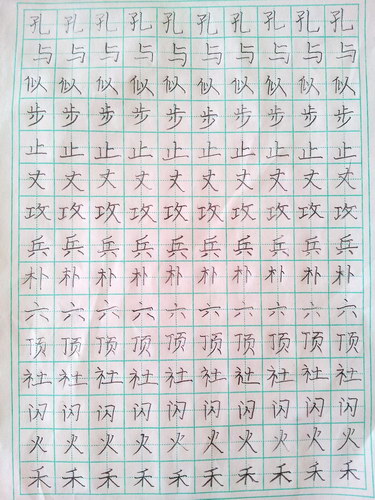 孔孔孔孔孔孔孔孔孔孔
与与与与与与与与与与
似似似似似似似似似似
步步步步步步步步步步
止止止止止止止止止止
丈丈丈丈丈丈丈丈丈丈
攻攻攻攻攻攻攻攻攻攻
兵兵兵兵兵兵兵兵兵兵
朴朴朴朴朴朴朴朴朴朴
六六六六六六六六六六
顶顶顶顶顶顶顶顶顶顶
社社社社社社社社社社
闪闪闪闪闪闪闪闪闪闪
火火火火火火火火火火
禾禾禾禾禾禾禾禾禾禾